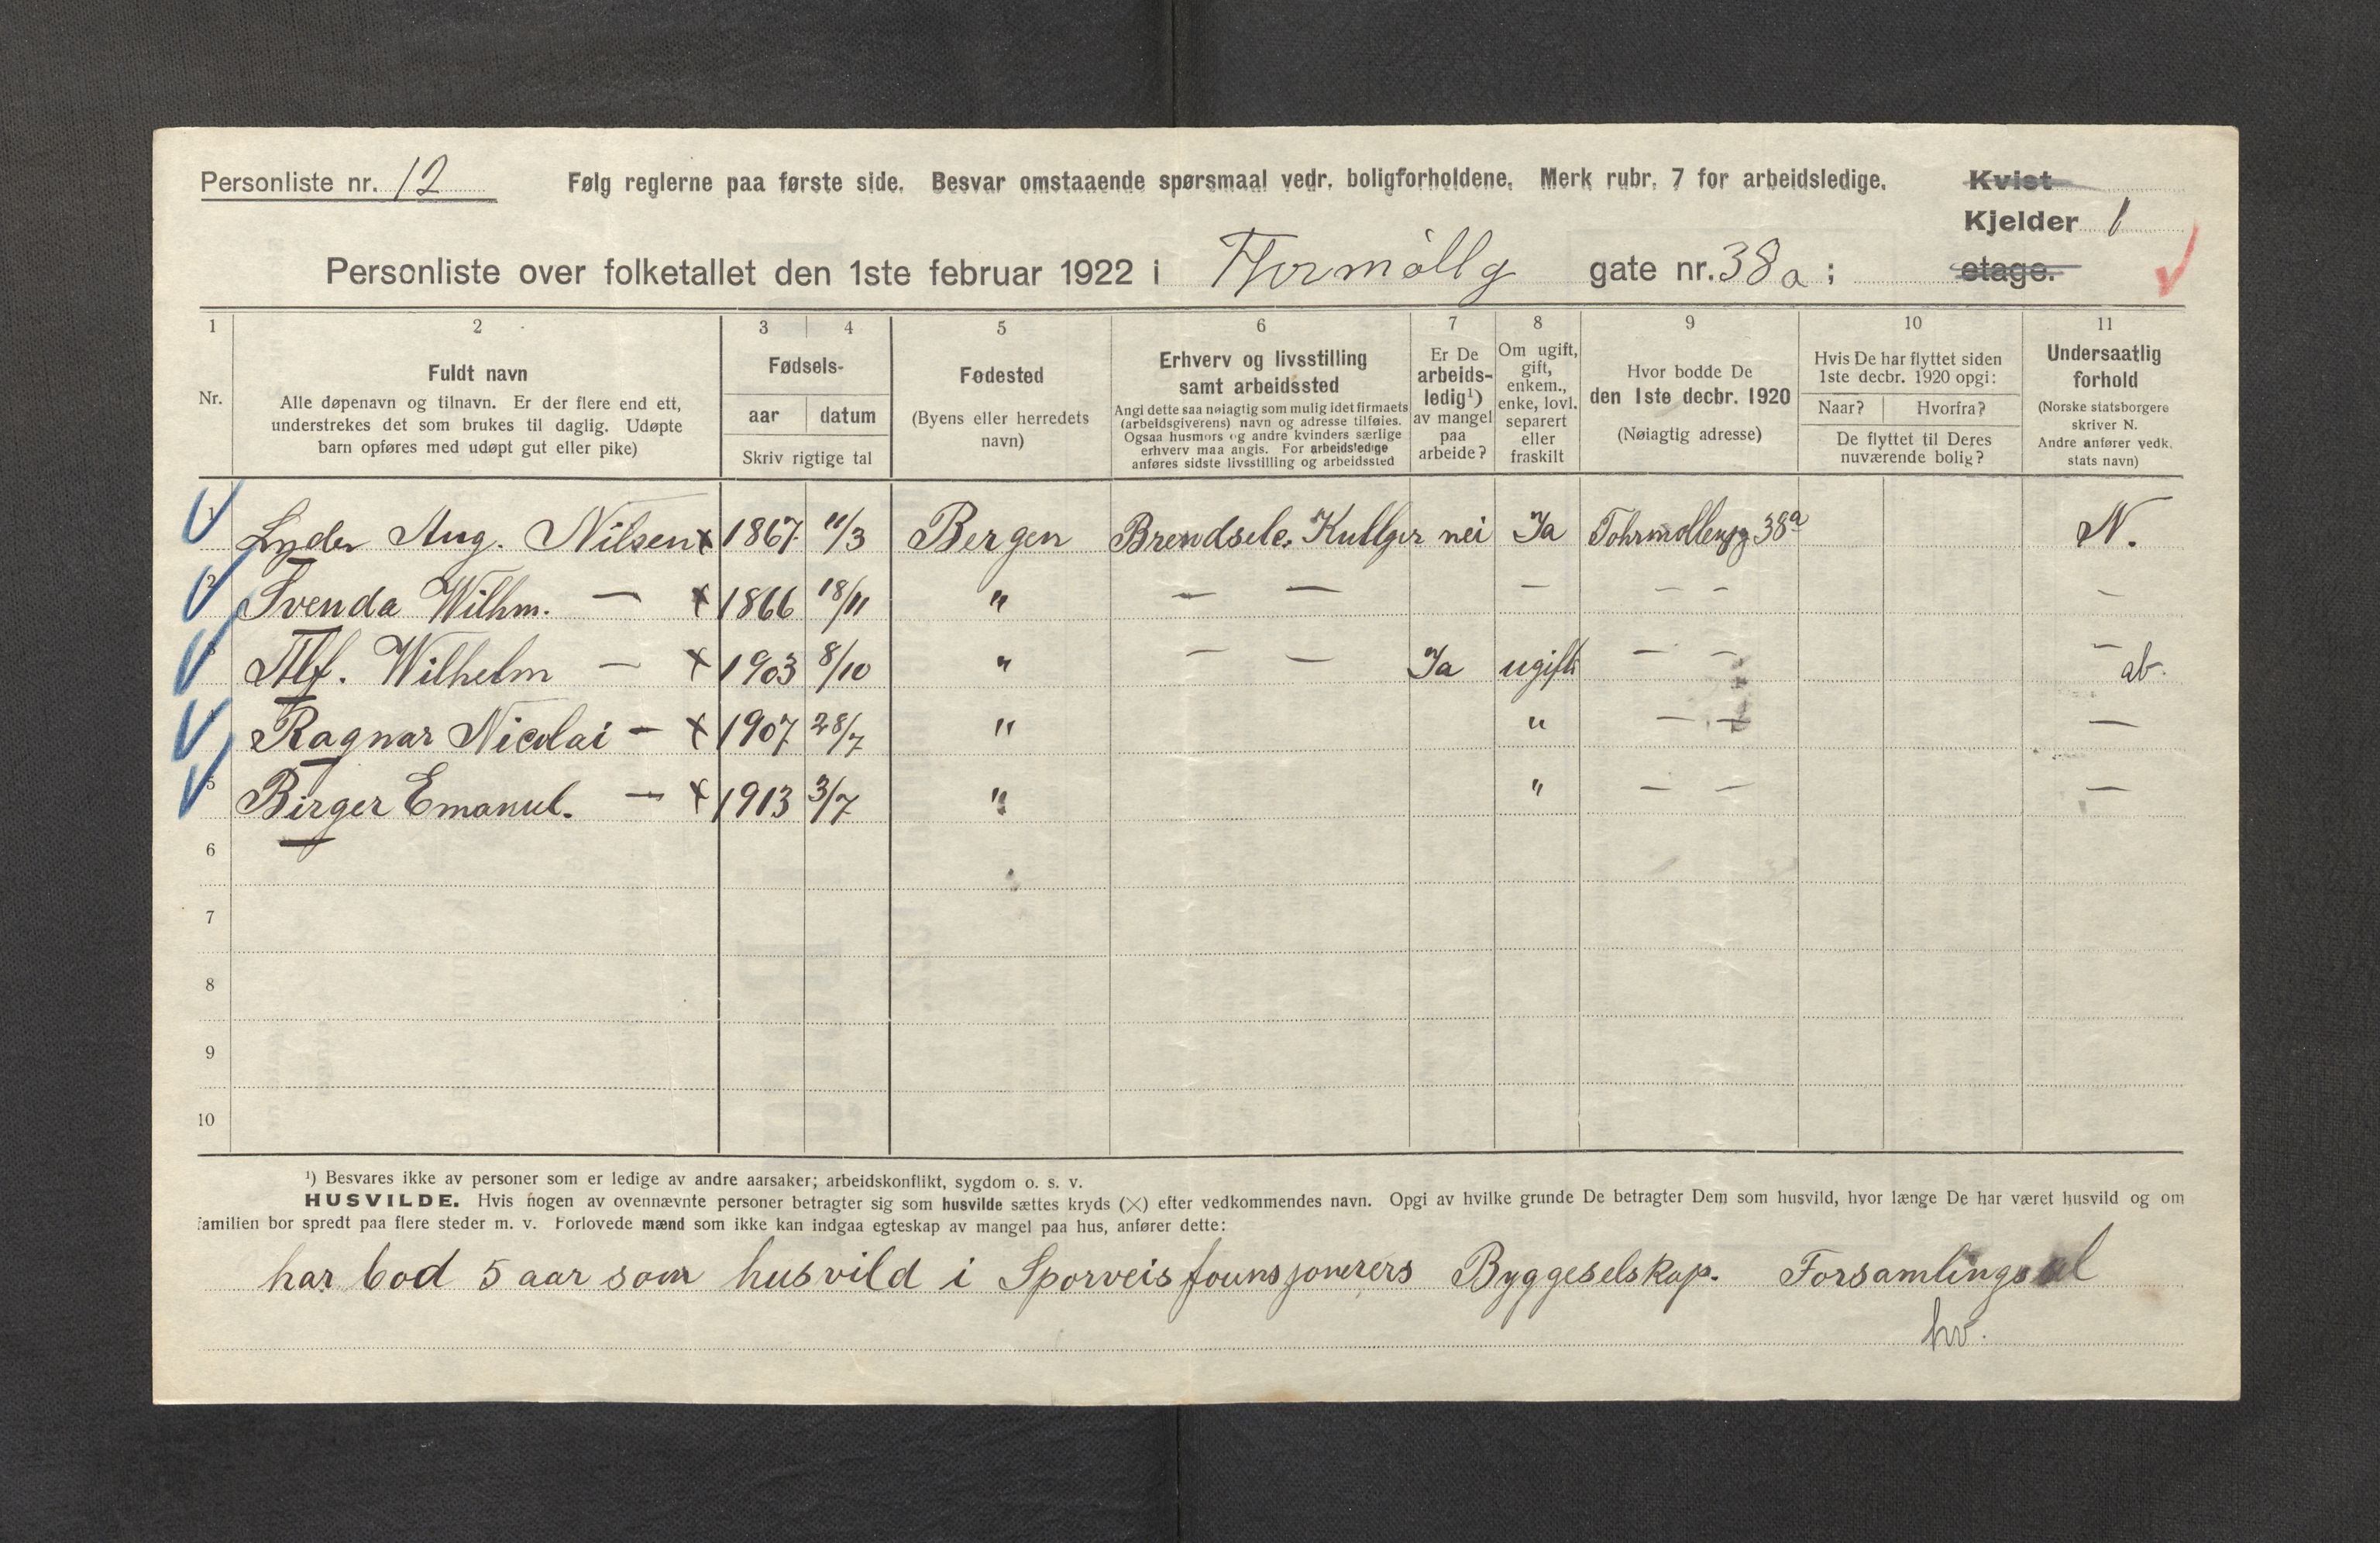 Personliste nr. 12
Følg reglerne paa første side. Besvar omstaaende spørsmaal vedr. boligforholdene. Merk rubr. 7 for arbeidsledige.
Kvist
Kjelder 1
etage.
Personliste over folketallet den 1ste februar 1922 i Thormøllg gate nr. 38a ;
1 2 3 4 5 6 7 8 9 10 11
Nr.
Fuldt navn
Alle døpenavn og tilnavn. Er der flere end ett,
understrekes det som brukes til daglig. Udøpte
barn opføres med udøpt gut eller pike)
Fødsels-
aar datum
Skriv rigtige tal
Fødested
(Byens eller herredets
navn)
Erhverv og livsstilling
samt arbeidssted
Angi dette saa nøiagtig som mulig idet firmaets
(arbeidsgiverens) navn og adresse tilføies.
Ogsaa husmors og andre kvinders særlige
erhverv maa angis. For arbeidsledige
anføres sidste livsstilling og arbeidssted
Er De
arbeids-
ledig¹)
av mangel
paa
arbeide?
Om ugift,
gift,
enkem.,
enke, lovl.
separert
eller
fraskilt
Hvor bodde De
den 1ste decbr. 1920
(Nøiagtig adresse)
Hvis De har flyttet siden
1ste decbr. 1920 opgi:
Naar? Hvorfra?
De flyttet til Deres
nuværende bolig?
Undersaatlig
forhold
(Norske statsborgere
skriver N.
Andre anfører vedk.
stats navn)
1 Lyder Aug. Nilsen x 1867 11/3 Bergen Brendsele. Kullger nei Ja 38a N.
2 Svenda Wilhm. — x 1866 18/11 " — — — — — —
3 Alf. Wilhelm — x 1903 8/10 " — — Ja ugift — — — ab.
Ragnar Nicolai — x 1907 28/7 " " — — —
5 Birger Emanul. — x 1913 3/7 " " — — —
6
7
8
9
10
¹) Besvares ikke av personer som er ledige av andre aarsaker; arbeidskonflikt, sygdom o. s. v.
HUSVILDE. Hvis nogen av ovennævnte personer betragter sig som husvilde sættes kryds (×) efter vedkommendes navn. Opgi av hvilke grunde De betragter Dem som husvild, hvor længe De har været husvild og om
familien bor spredt paa flere steder m. v. Forlovede mænd som ikke kan indgaa egteskap av mangel paa hus, anfører dette:
har bod 5 aar som husvild i Sporveisfounsjonerers Byggeselskap. Forsamlingsal
hv.